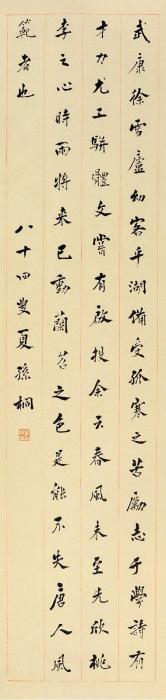 武康徐雪廬幼客平湖備受孤寒之苦勵志于學詩有
才力尤工駢體文嘗有啟投余云春風未至先欣桃
李之心時雨將来已動蘭苕之色是能不失唐人風
範者也
八十四叟夏孫桐